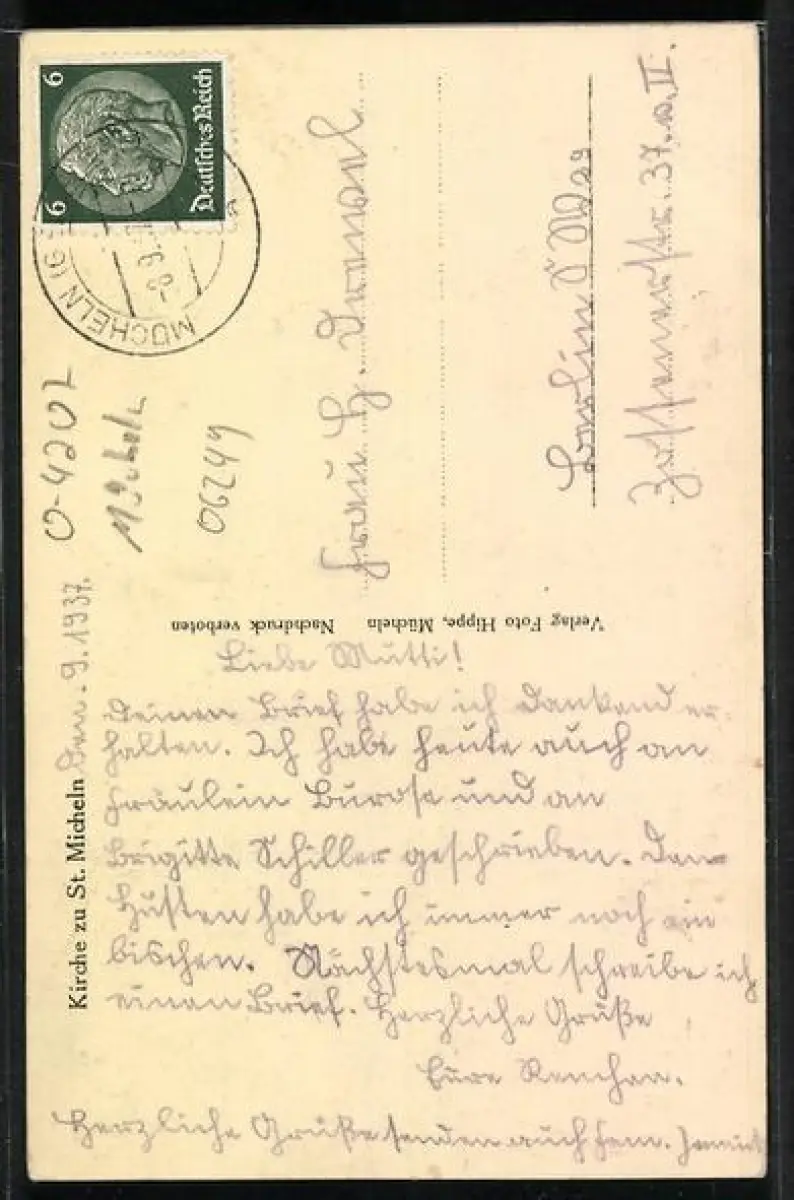 6 Deutsches Reich 6
MÜCHELN (G
-8.9.
O-4202
Mücheln
06249
Frau H.
Berlin S.W. 29
Zossenerstr. 37. v. II.
Verlag Foto Hippe, Mücheln Nachdruck verboten
Kirche zu St. Micheln
Den . 9. 1937.
Liebe Mutti!
Deinen Brief habe ich dankend er-
halten. Ich habe heute auch an
Fräulein Burose und an
Brigitte Schiller geschrieben. Den
Husten habe ich immer noch ein
bischen. Nächstesmal schreibe ich
einen Brief. Herzliche Grüße
Eure Renchen.
Herzliche Grüße senden auch Fam.